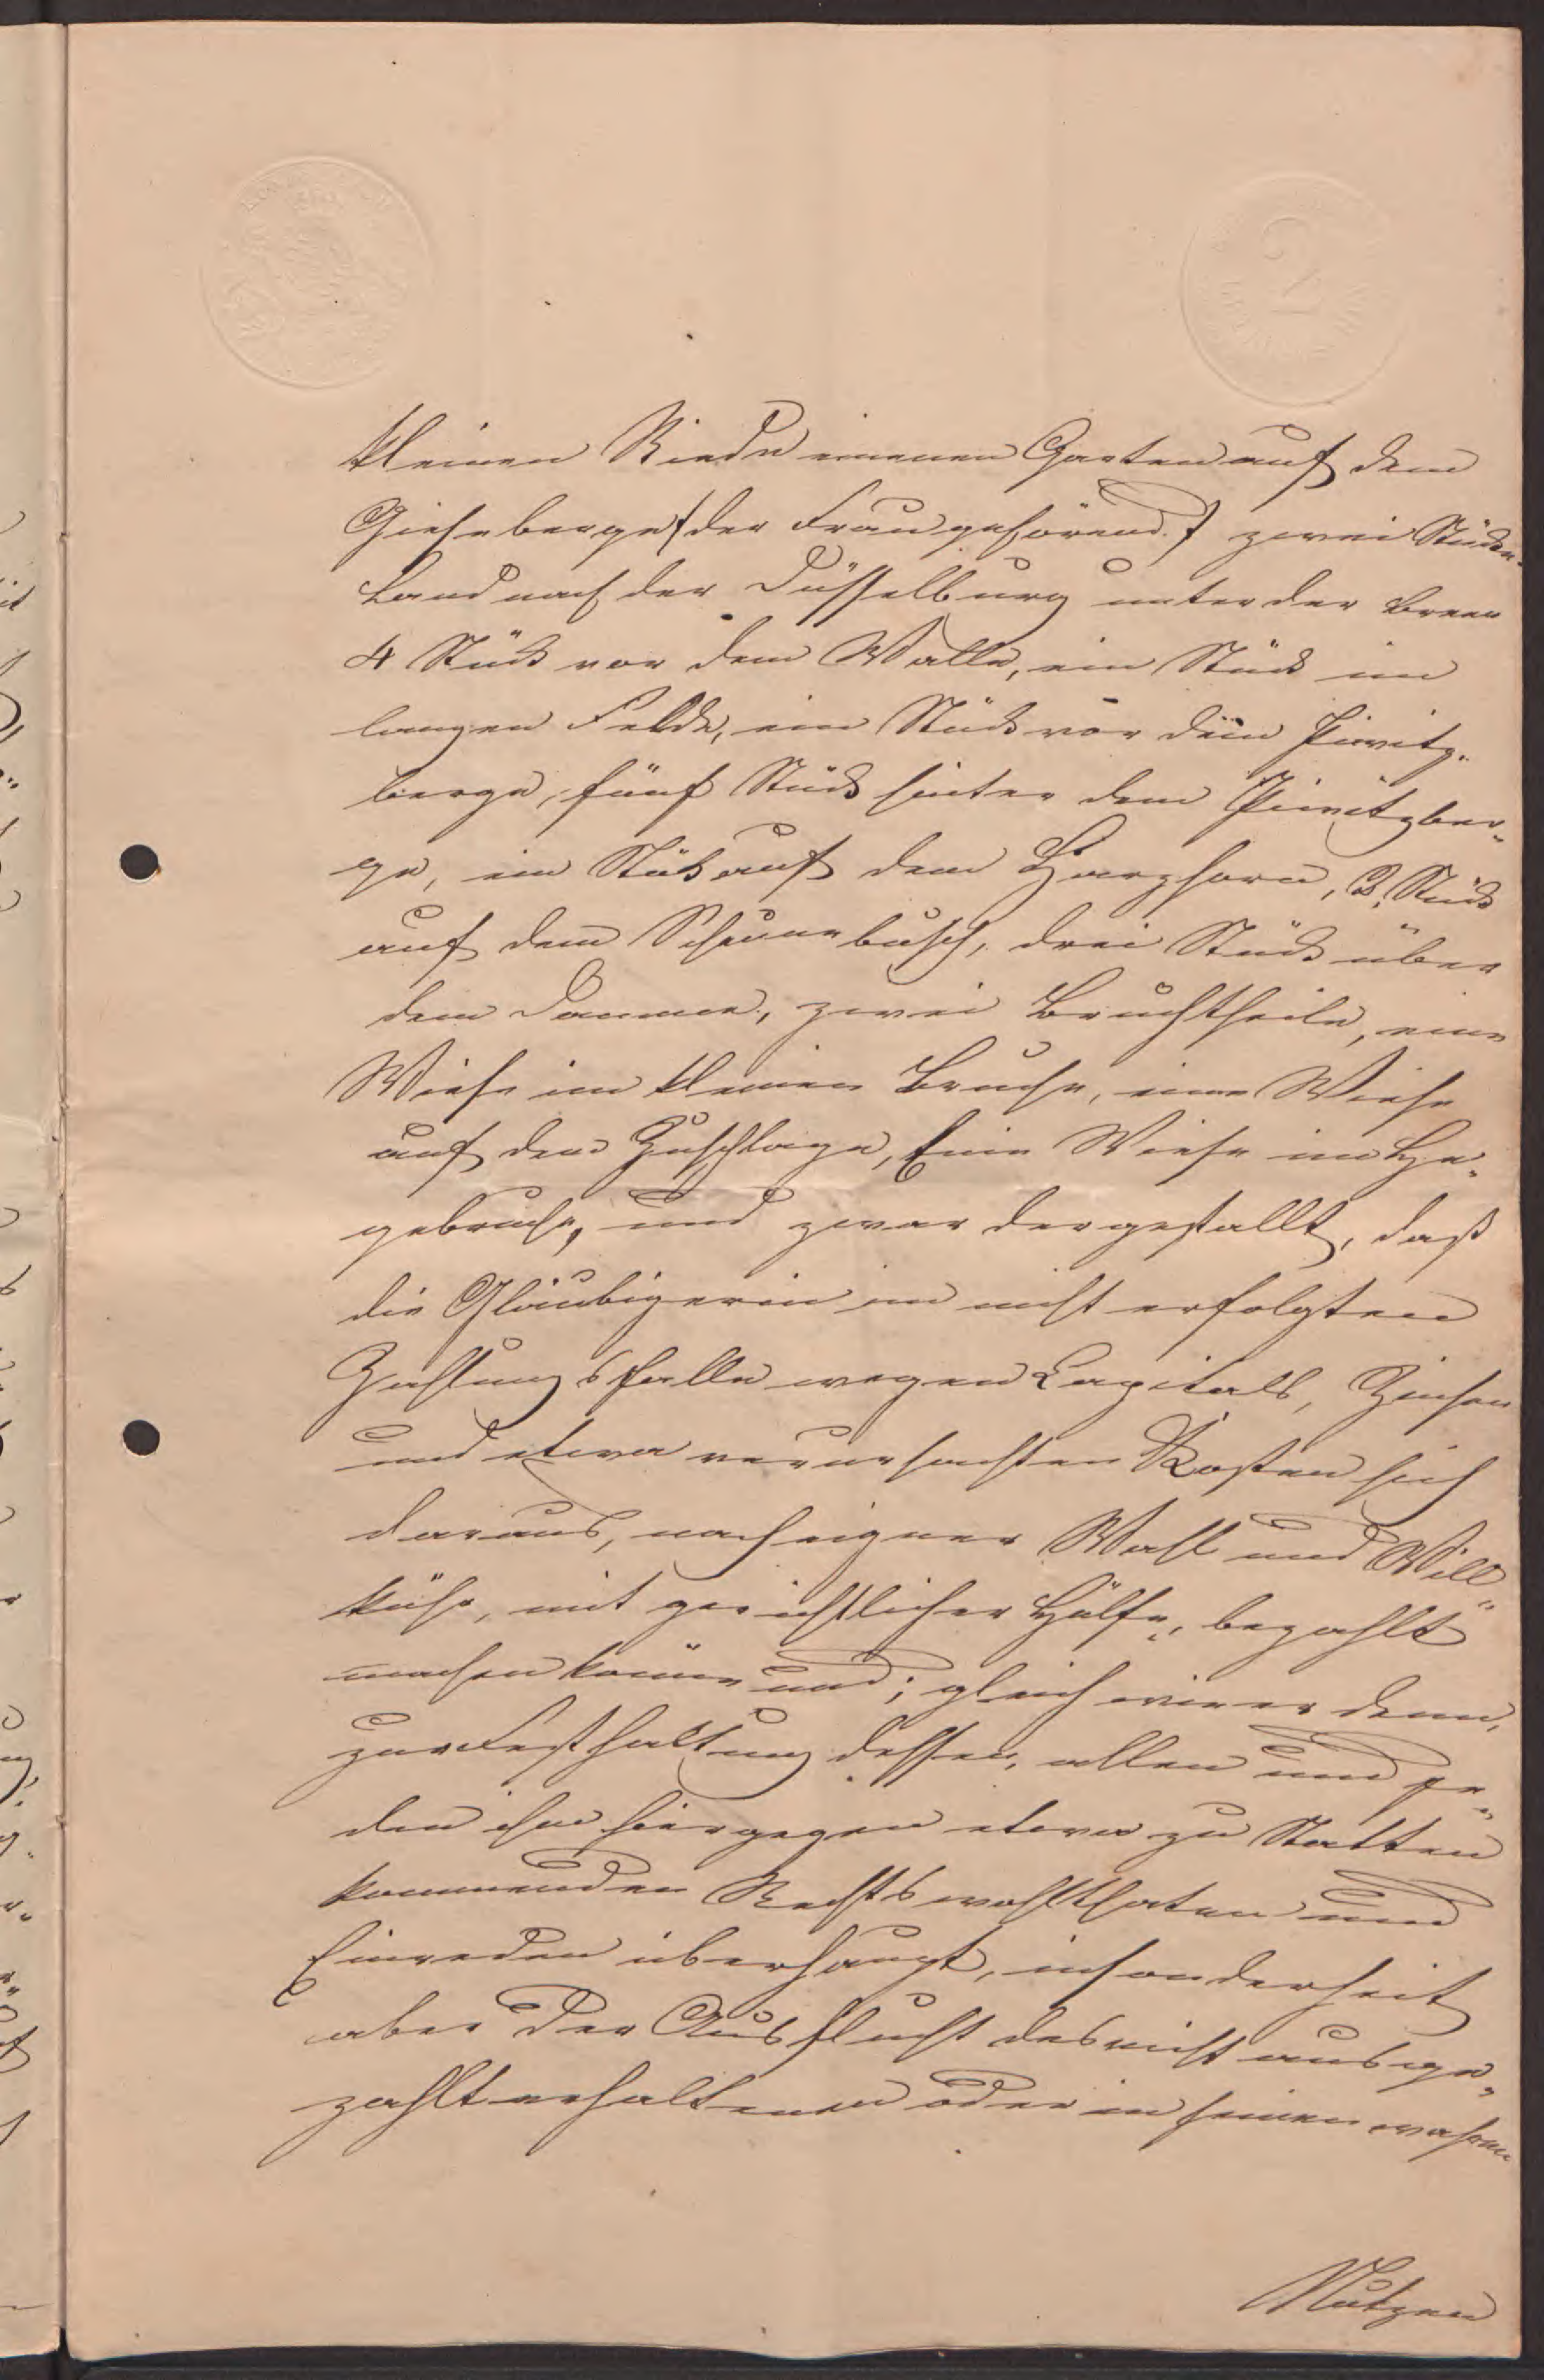 kleinen Riede einenen Garten auf dem
Gieseberge /:der Frau gehörend:/ zwei Stücke
Land nach der Düsselburg unter der breen
4 Stück vor dem Walle, ein Stück im
langen Felde, ein Stück vor dem Pivitz-
berge, fünf Stück hinter dem Pivitzber-
ge, ein Stük auf dem Harghorn, 3. Stück
auf dem Scheunebusch, drei Stück über
dem Damme, zwei Bruchtheile, eine
Wiese im kleinen Bruche, eine Wiese
auf dem Zuschlage, Eine Wiese im He-
gebruche, und zwar dergestallt, daß
die Gläubigerin im nicht erfolgten
Zahlungsfalle wegen Capitals, Zinsen
und etwa verursachten Kosten sich
daraus, nach eigner Wahl und Will-
kühr, mit gerichtlicher Hülfe, bezahlt
machen könne und; gleich wie er denn,
zur Festhaltung dessen, allen und je-
den ihm hiergegen etwa zu Statten
kommenden Rechtswohlthaten und
Einreden überhaupt, insonderheit
aber der Ausflucht des nicht ausge-
zahlt erhaltenen oder in seinen wahren
Nutzen